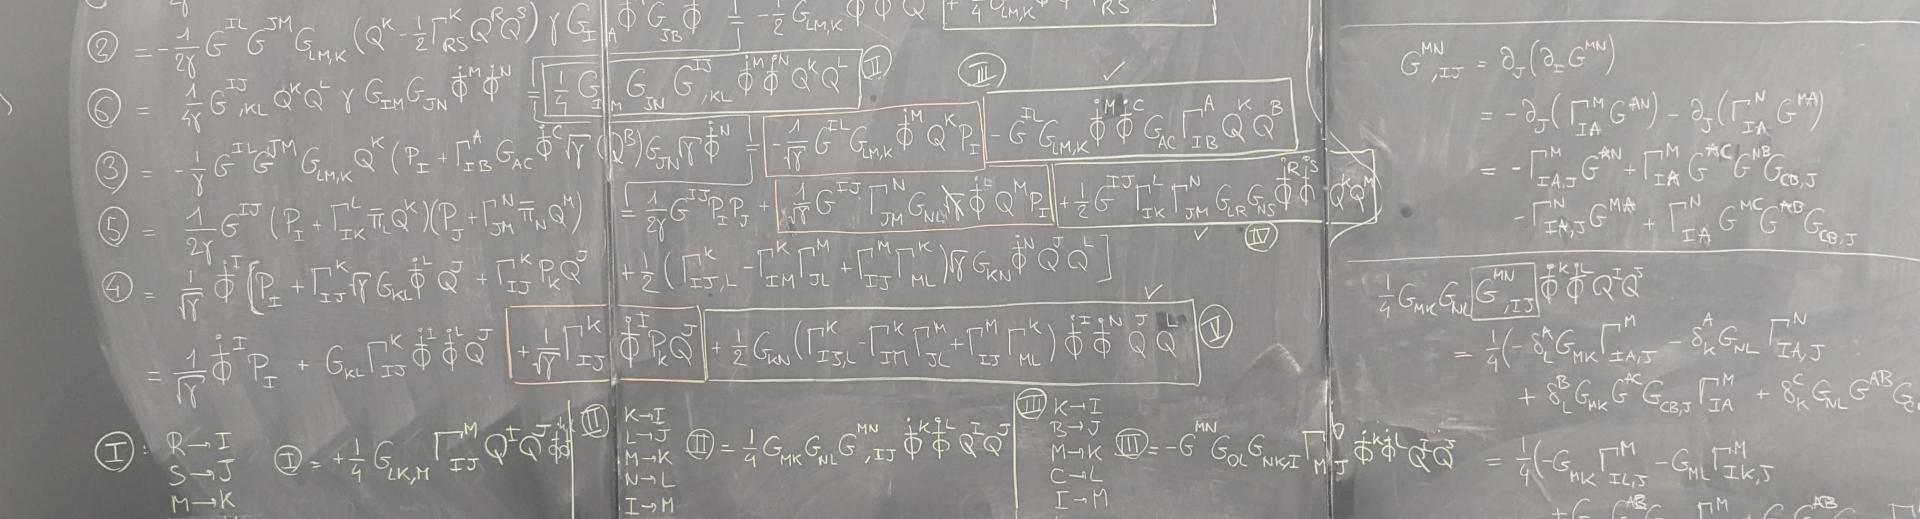 ② = -\frac{1}{2γ} G^{IL} G^{JM} G_{LM,K} (Q^K - \frac{1}{2} Γ^K_{RS} Q^R Q^S) γ G_{IA} \dot{Φ}^A G_{JB} \dot{Φ}^B = -\frac{1}{2} G_{LM,K}
⑥ = \frac{1}{4γ} G^{IJ}_{,KL} Q^K Q^L γ G_{IM} G_{JN} \dot{Φ}^M \dot{Φ}^N = \frac{1}{4} G_{IM} G_{JN} G^{IJ}_{,KL} \dot{Φ}^M \dot{Φ}^N Q^K Q^L Ⅱ
③ = -\frac{1}{γ} G^{IL} G^{JM} G_{LM,K} Q^K (P_I + Γ^A_{IB} G_{AC} \dot{Φ}^C \sqrt{γ} Q^B) G_{JN} \sqrt{γ} \dot{Φ}^N = -\frac{1}{\sqrt{γ}} G^{IL} G_{LM,K} \dot{Φ}^M Q^K P_I - G^{IL} G_{LM,K} \dot{Φ}^M \dot{Φ}^C G_{AC} Γ^A_{IB} Q^K Q^B Ⅲ ✓
⑤ = \frac{1}{2γ} G^{IJ} (P_I + Γ^L_{IK} π_L Q^K)(P_J + Γ^N_{JM} π_N Q^M) = \frac{1}{2γ} G^{IJ} P_I P_J + \frac{1}{\sqrt{γ}} G^{IJ} Γ^N_{JM} G_{NL} \dot{Φ}^L Q^M P_I + \frac{1}{2} G^{IJ} Γ^L_{IK} Γ^N_{JM} G_{LR} G_{NS} \dot{Φ}^R \dot{Φ}^S Q^K Q^M ✓ Ⅳ
④ = \frac{1}{\sqrt{γ}} \dot{Φ}^I [P_I + Γ^K_{IJ} \sqrt{γ} G_{KL} \dot{Φ}^L Q^J + Γ^K_{IJ} P_K Q^J + \frac{1}{2} (Γ^K_{IJ,L} - Γ^K_{IM} Γ^M_{JL} + Γ^M_{IJ} Γ^K_{ML}) \sqrt{γ} G_{KN} \dot{Φ}^N Q^J Q^L]
= \frac{1}{\sqrt{γ}} \dot{Φ}^I P_I + G_{KL} Γ^K_{IJ} \dot{Φ}^I \dot{Φ}^L Q^J + \frac{1}{\sqrt{γ}} Γ^K_{IJ} \dot{Φ}^I P_K Q^J + \frac{1}{2} G_{KN} (Γ^K_{IJ,L} - Γ^K_{IM} Γ^M_{JL} + Γ^M_{IJ} Γ^K_{ML}) \dot{Φ}^I \dot{Φ}^N Q^J Q^L ✓ Ⅴ
Ⅰ:
R→I
S→J
M→K
Ⅰ = +\frac{1}{4} G_{LK,M} Γ^M_{IJ} Q^I Q^J
Ⅱ
K→I
L→J
M→K
N→L
I→M
Ⅱ = \frac{1}{4} G_{MK} G_{NL} G^{MN}_{,IJ} \dot{Φ}^K \dot{Φ}^L Q^I Q^J
Ⅲ
K→I
B→J
M→K
C→L
I→M
Ⅲ = -G^{MN} G_{OL} G_{NK,I} Γ^O_{MJ} \dot{Φ}^K \dot{Φ}^L Q^I Q^J
G^{MN}_{,IJ} = ∂_J (∂_I G^{MN})
= -∂_J (Γ^M_{IA} G^{AN}) - ∂_J (Γ^N_{IA} G^{MA})
= -Γ^M_{IA,J} G^{AN} + Γ^M_{IA} G^{AC} G^{NB} G_{CB,J}
-Γ^N_{IA,J} G^{MA} + Γ^N_{IA} G^{MC} G^{AB} G_{CB,J}
\frac{1}{4} G_{MK} G_{NL} G^{MN}_{,IJ} \dot{Φ}^K \dot{Φ}^L Q^I Q^J
= \frac{1}{4} (-δ^A_L G_{MK} Γ^M_{IA,J} - δ^A_K G_{NL} Γ^N_{IA,J}
+ δ^B_L G_{MK} G^{AC} G_{CB,J} Γ^M_{IA} + δ^C_K G_{NL} G^{AB}
= \frac{1}{4} (-G_{MK} Γ^M_{IL,J} - G_{ML} Γ^M_{IK,J}